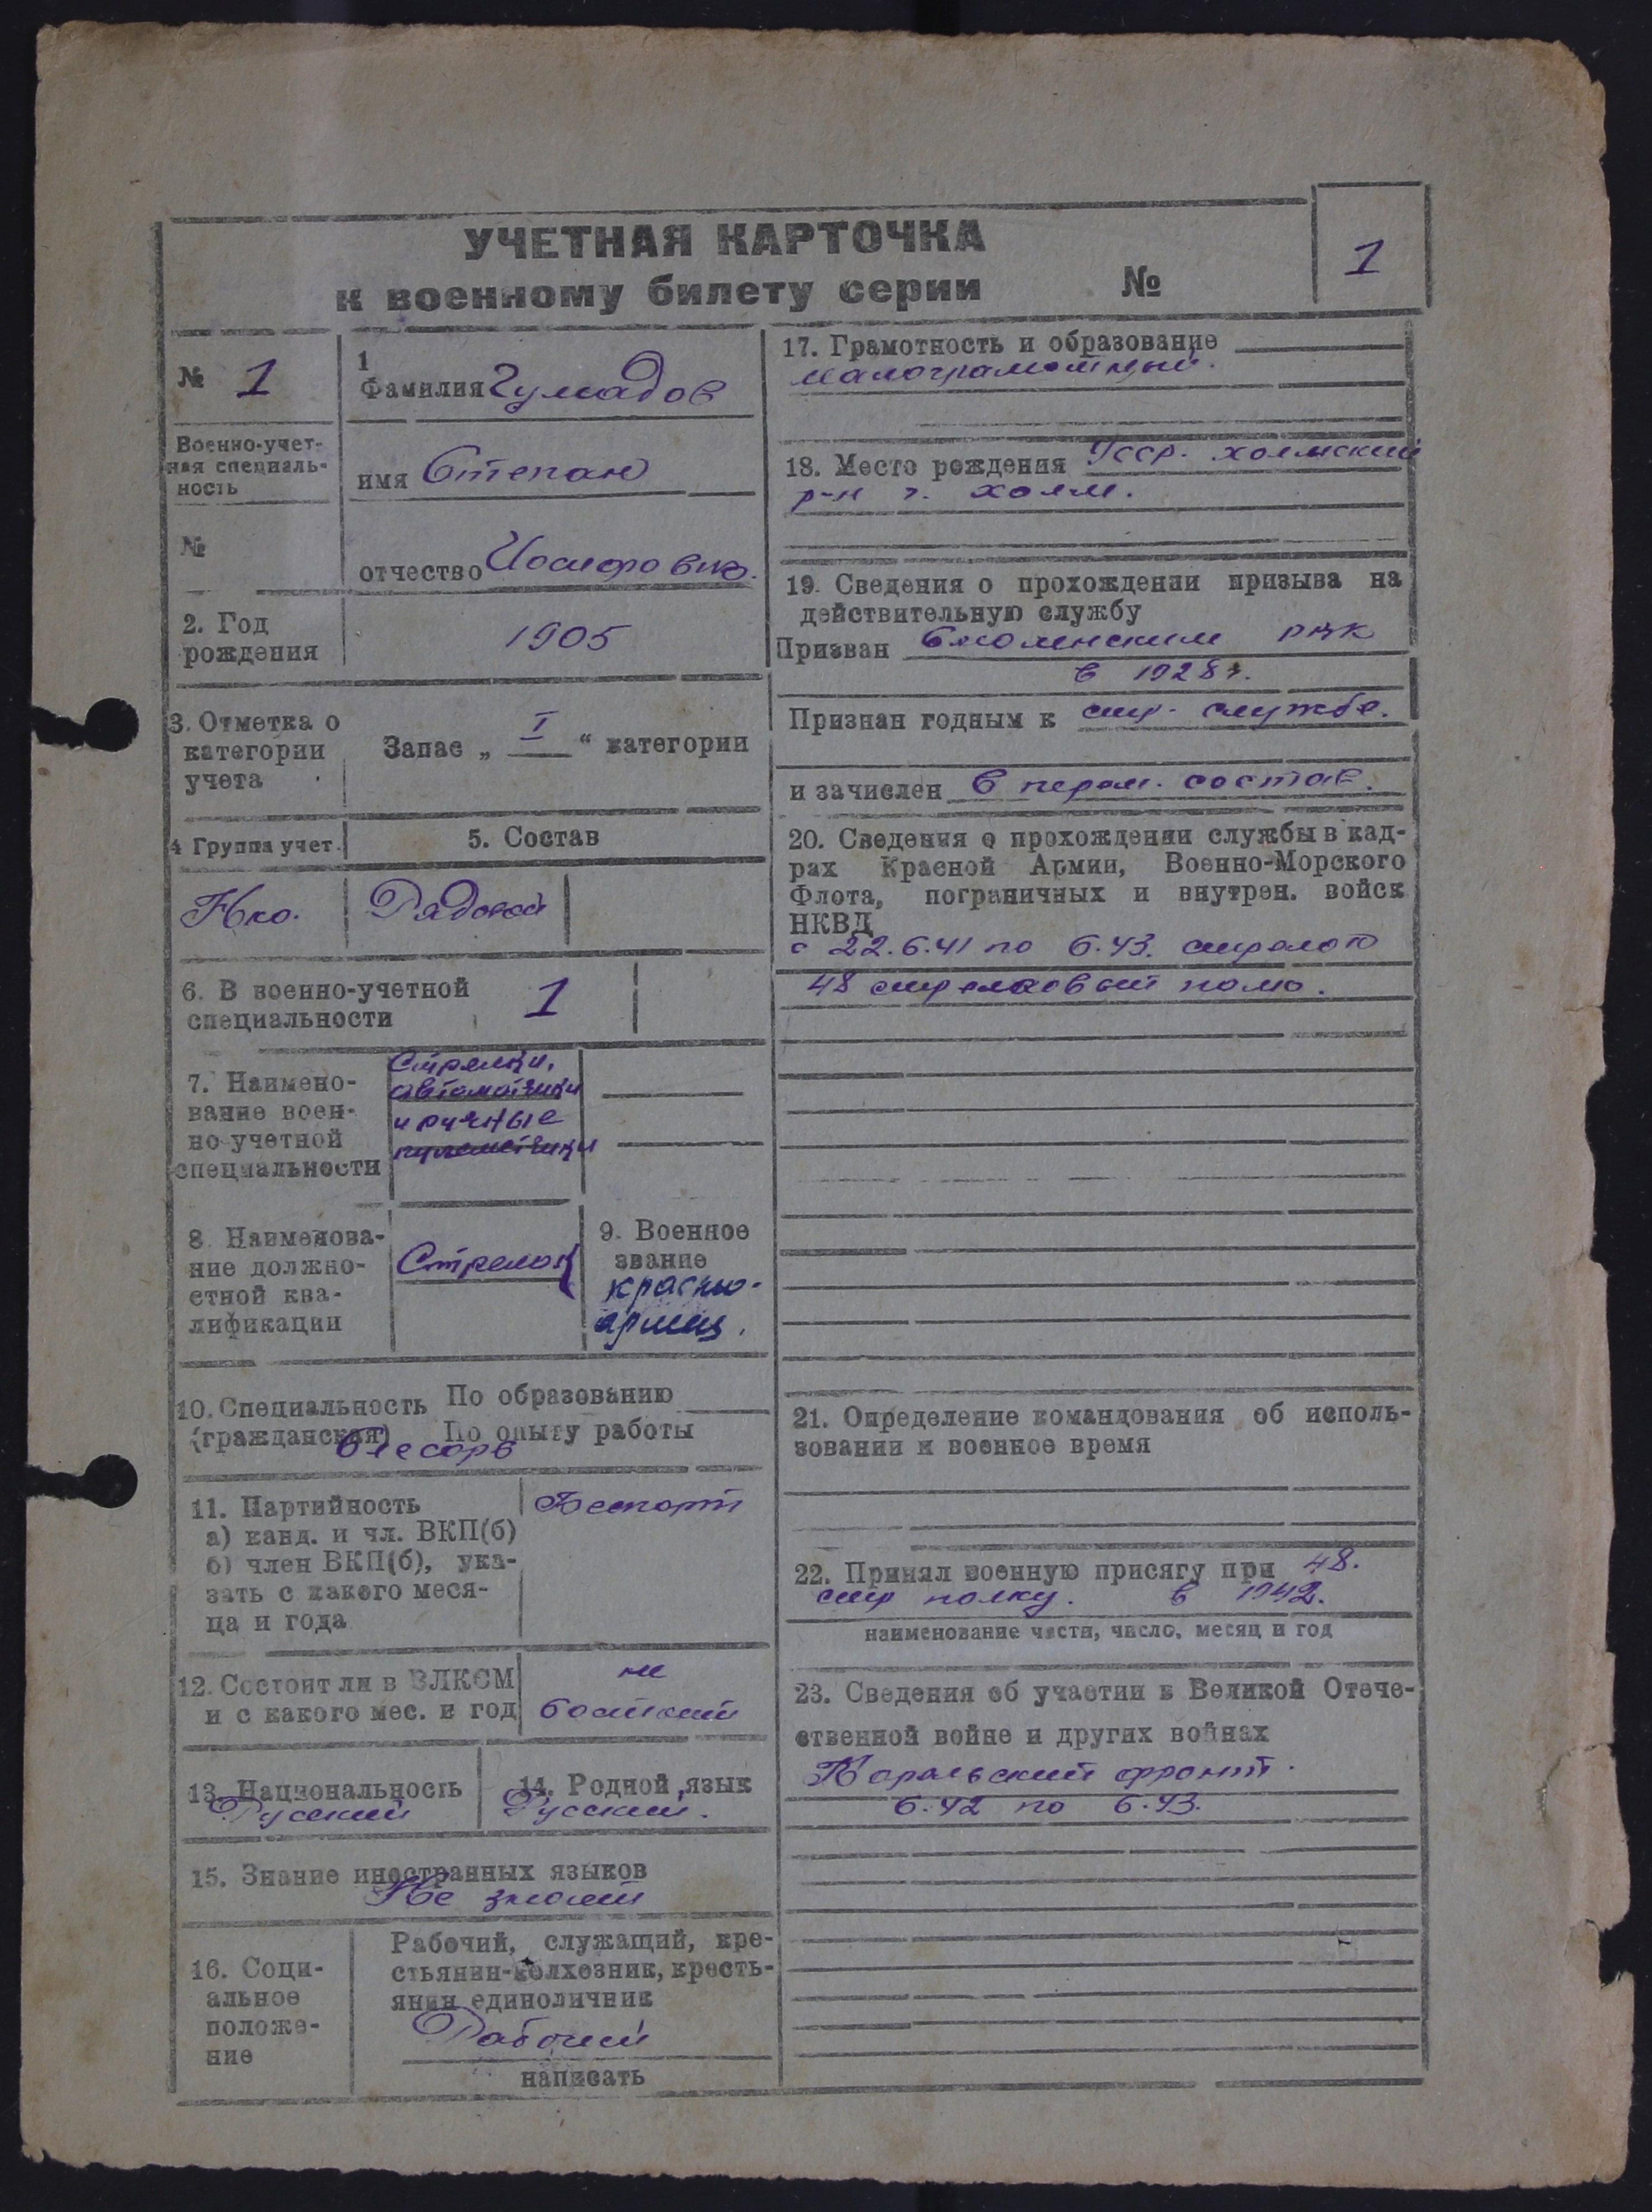 УЧЕТНАЯ КАРТОЧКА
к военному билету серии №
1
№ 1
Военно-учет-
ная специаль-
ность
№
1
Фамилия Гумадов
имя Степан
отчество Иосифович.
2. Год
рождения
1905
3. Отметка о
категории
учета
Запас „ I “ категории
4 Группа учет.
5. Состав
Нко.
Рядовой
6. В военно-учетной
специальности
1
7. Наимено-
вание воен-
но-учетной
специальности
Стрелки,
автоматчики
и ручные
пулеметчики
8. Наименова-
ние должно-
стной ква-
лификации
Стрелок
9. Военное
звание
красно-
армец.
10. Специальность
(гражданская)
По образованию
По опыту работы
Слесарь
11. Партийность
а) канд. и чл. ВКП(б)
б) член ВКП(б), ука-
зать с какого меся-
ца и года
Беспарт
12. Состоит ли в ВЛКСМ
и с какого мес. и год
не
13. Национальность
Русский
14. Родной язык
Русский.
15. Знание иностранных языков
Не знает
16. Соци-
альное
положе-
ние
Рабочий, служащий, кре-
стьянин-колхозник, кресть-
янин единоличник
Рабочий
написать
17. Грамотность и образование
малограмотный.
18. Место рождения Усср. холмский
р-н г. холм.
19. Сведения о прохождении призыва на
действительную службу
Призван Смоленским рвк
в 1928 г.
Признан годным к стр. службе.
и зачислен в перем. состав.
20. Сведения о прохождении службы в кад-
рах Красной Армии, Военно-Морского
Флота, пограничных и внутрен. войск
НКВД
с 22.6.41 по 6.43. стрелок
48 стрелковый полк.
21. Определение командования об исполь-
зовании в военное время
22. Принял военную присягу при 48.
стр полку. в 1942.
наименование части, число, месяц и год
23. Сведения об участии в Великой Отече-
ственной войне и других войнах
Карельский фронт.
6.42 по 6.43.